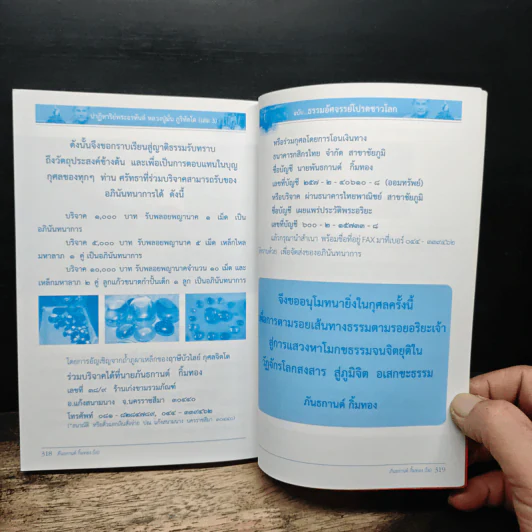 ปาฏิหาริย์พระอรหันต์ หลวงปู่มั่น ภูริทัตโต
ดังนั้นจึงขอกราบเรียนสู่ญาติธรรมรับทราบ
ถึงวัตถุประสงค์ข้างต้น และเพื่อเป็นการตอบแทนในบุญ
กุศลของทุกๆ ท่าน ศรัทธาที่ร่วมบริจาคสามารถรับของ
อภินันทนาการได้ ดังนี้
บริจาค ๑,๐๐๐ บาท รับพลอยพญานาค ๑ เม็ด เป็น
อภินันทนาการ
บริจาค ๕,๐๐๐ บาท รับพลอยพญานาค ๕ เม็ด เหล็กไหล
มหาลาภ ๑ คู่ เป็นอภินันทนาการ
บริจาค ๑๐,๐๐๐ บาท รับพลอยพญานาคจำนวน ๑๐ เม็ด และ
เหล็กมหาลาภ ๒ คู่ ลูกแก้วขนาดกำปั้นเด็ก ๑ ลูก เป็นอภินันทนาการ
โดยการอัญเชิญจากถ้ำภูผาเหล็กของอาษิปัวไลย์ กุศลจิตโต
ร่วมบริจาคได้ที่นายภันธกานต์ กิ้มทอง
เลขที่ ๓๘/๙ ร้านเก่งขามรวมภัณฑ์
อ.แก้งสนามนาง จ.นครราชสีมา ๓๐๔๔๐
โทรศัพท์
518
ฉบับ...ธรรมอัศจรรย์โปรดชาวโลก
หรือร่วมกุศลโดยการโอนเงินทาง
ธนาคารกสิกรไทย จำกัด สาขาชัยภูมิ
ชื่อบัญชี นายพันธกานต์ กิ้มทอง
เลขที่บัญชี ๒๕๗ - ๒ - ๔๐๖๑๐ - ๘ (ออมทรัพย์)
หรือบริจาค ผ่านธนาคารไทยพาณิชย์ สาขาชัยภูมิ
ชื่อบัญชี เผยแพร่ประวัติพระอริยะ
เลขที่บัญชี ๖๐๐ - ๒ - ๑๕๗๓๓ - ๘
แล้วกรุณานำสำเนา พร้อมชื่อที่อยู่ FAX มาที่เบอร์ ๐๔๔ - ๓๓๙๔๖๒
เพื่อจัดส่งของอภินันทนาการ
จึงขออนุโมทนายิ่งในกุศลครั้งนี้
เพื่อการตามรอยเส้นทางธรรมตามรอยอริยะเจ้า
สู่การแสวงหาโมกขธรรมจนจิตยุติใน
วัฏจักรโลกสงสาร สู่ภูมิจิต อเสกขะธรรม
ภันธกานต์ กิ้มทอง
519